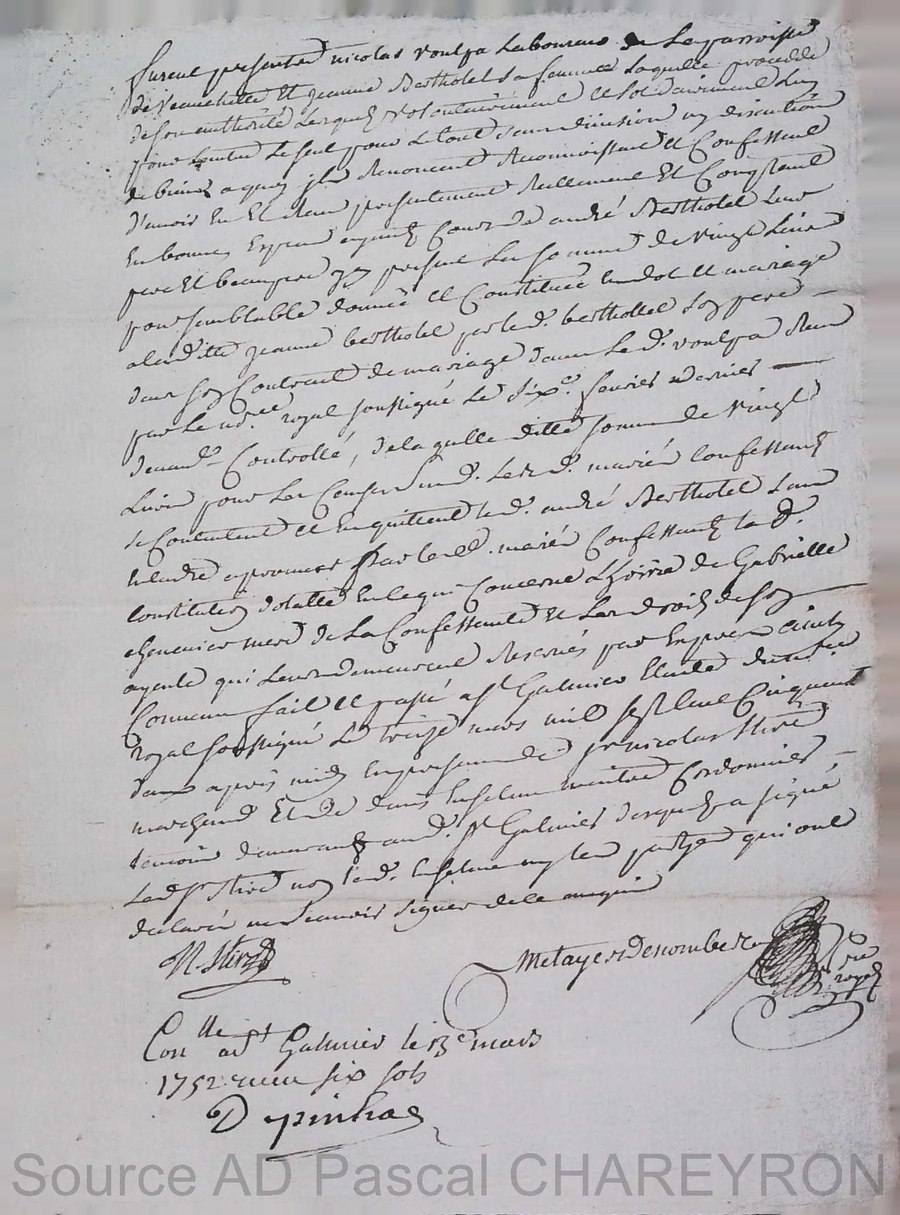 furent presents nicolas voulpa Laboureur de La parroisse
de veauchette Et jeanne Berthollet sa femme Laquelle procedde
de son authorité Lesquels volontairement et solidairement Lun
pour Lautre Le seul pour Le tout sans division ny discution
de biens a quoy ils Renoncent Reconnoissent et Confessent
d'avoir Eu Et Receu presentement Reellement Et Comptant
En bonnes Especes ayants Cours de andré Berthollet Leur
pere Et beaupere icy present La somme de vingt Livres
pour semblable donnée et Constituée En dot et mariage
a laditte jeanne berthollet par led. berthollet Son pere
dans son Contract de mariage dans Le d. voulpa Receu
par Le no.re royal soussigné Le six.e fevrier dernier
Controllé, de laquelle ditte somme de vingt
Livres pour La Cause susd. Lesd. mariés Confessants
se Contentent et En quittent led. andré Berthollet sans
par lesd. mariés Confessants la d.
Constitution dotalle En ce qui Concerne L'hoirie de Gabrielle
mere de La Confessante Et Les droits de son
ayeule qui Leur demeurent Reservés par Exprés ainsy
Convenu fait et passé a st Galmier Etude du no.re
royal soussigné Le treize mars mil sept Cent Cinquante
deux aprés midy En presence de sr nicolas Stire
marchand Et de denis maitre Cordonnier
temoins demeurants aud. st Galmier Lesquels a signé
Led sr Stire non led. ny les parties qui ont
declarés ne scavoir signer de ce enquis
N. Stire
Metayer Denombe no.re royal
Con.lle a st Galmier le 13e mars
1752 receu six sols
Depinhac
Source AD Pascal CHAREYRON